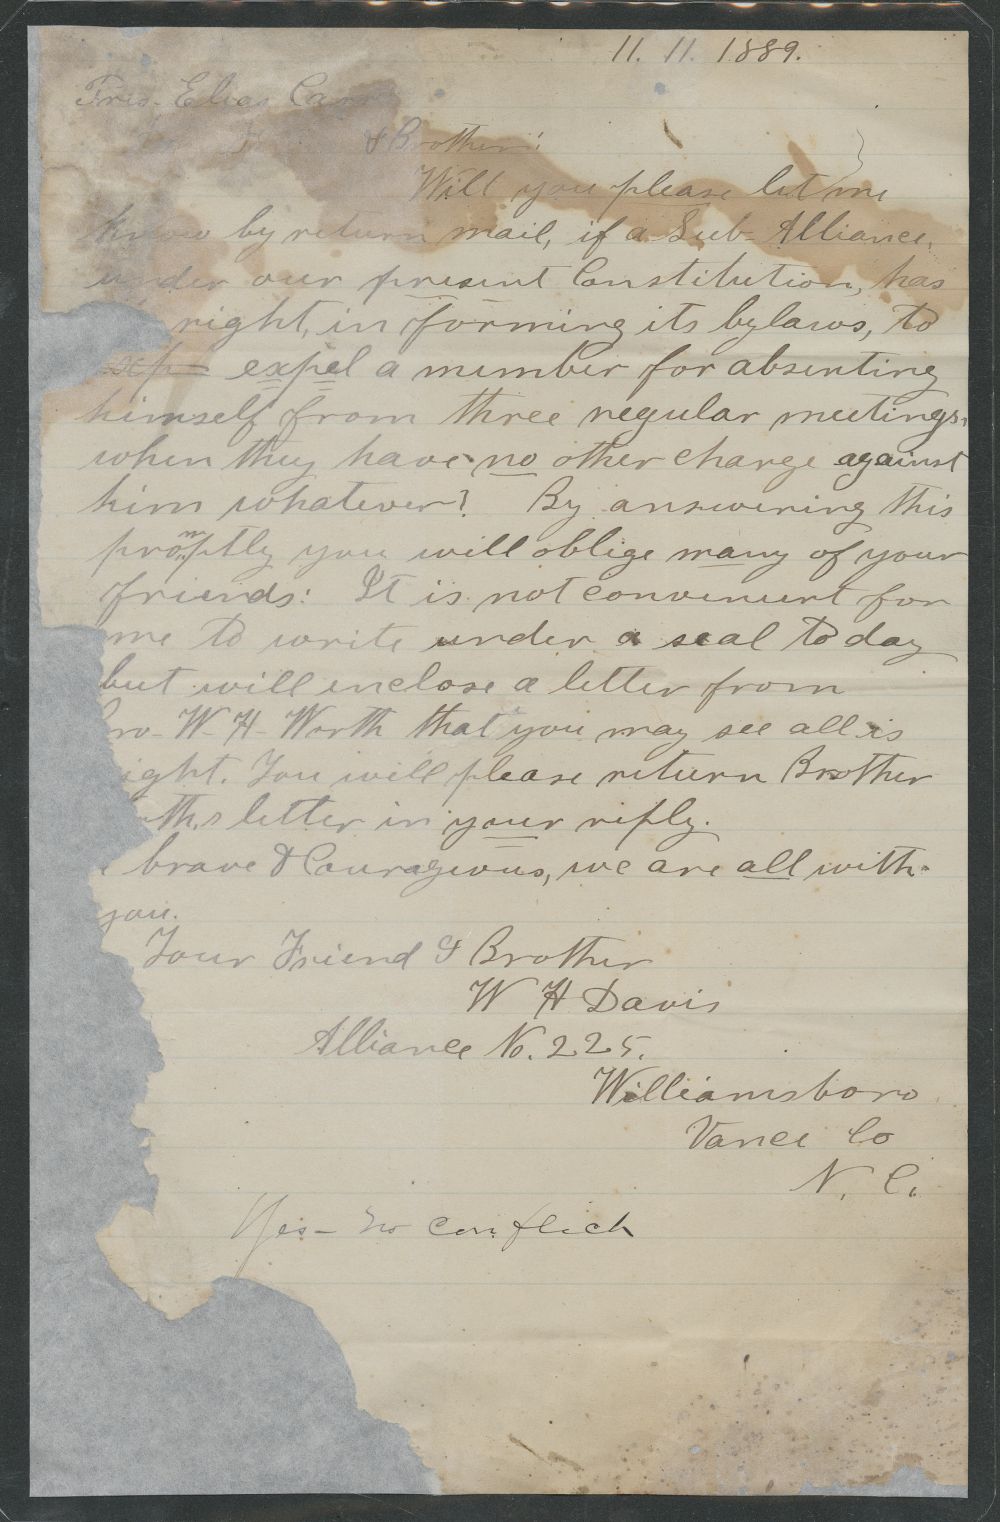 11. 11. 1889.
Pres. Elias Carr
& Brother:
Will you please let me
know by return mail, if a Sub-Alliance,
under our present Constitution, has
right, in forming its bylaws, to
exp expel a member for absenting
himself from three regular meetings,
when they have no other charge against
him whatever? By answering this
promptly you will oblige many of your
friends: It is not convenient for
me to write under a seal to day
but will enclose a letter from
ro. W. H. Worth that you may see all is
ight. You will please return Brother
rth,s letter in your reply.
brave & Courageous, we are all with
you.
Your Friend & Brother
W H Davis
Alliance No. 225.
Williamsboro
Vance Co
N. C.
Yes - no conflict